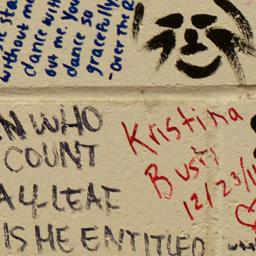 without me
dance with
out me. You
dance so
gracefully
-Over the R
N WHO
COUNT
A 4 LEAF
IS HE ENTITLED
Kristina
Busti
12/23/11